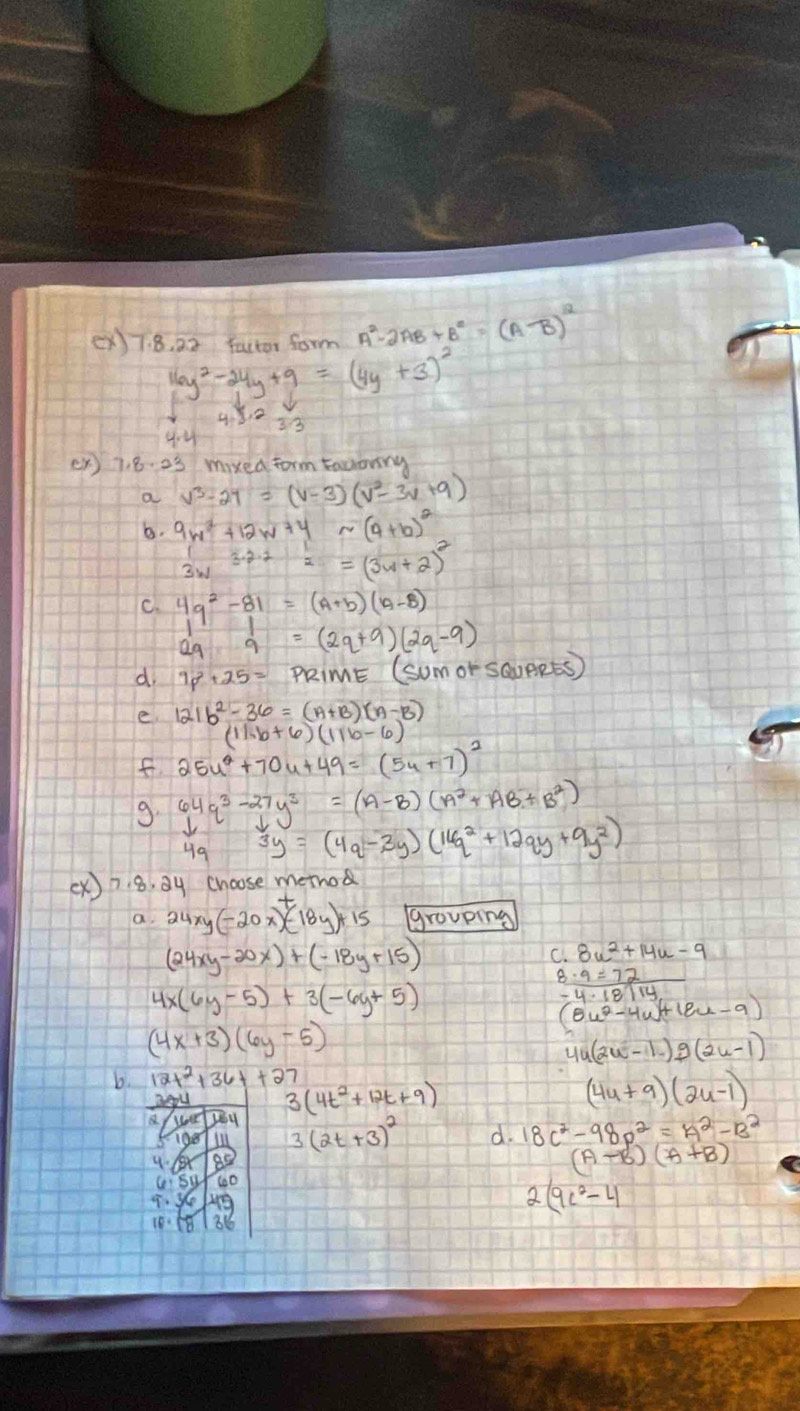 ex) 7.8.22 factor form A²-2AB+B² = (A-B)²
16y²-24y+9 = (4y+3)²
4·4 4·3·2 3·3
ex) 7.8.23 mixed form factoring
a. v³-27 = (v-3)(v²-3v+9)
b. 9w²+12w+4 ~ (a+b)²
3w 3·2·2 2 = (3w+2)²
c. 4q²-81 = (A+b)(A-B)
2q 9 = (2q+9)(2q-9)
+25 = PRIME (SUM OF SQUARES)
e. 121b²-36 = (A+B)(A-B)
(11b+6)(11b-6)
f. 25u²+70u+49 = (5u+7)²
g. 64q³-27y³ = (A-B)(A²+AB+B²)
4q 3y = (4q-3y)(16q²+12qy+9y²)
ex) 7.8.24 choose method
a. 24xy(-20x)+(-18y)+15 grouping
(24xy-20x)+(-18y+15)
4x(6y-5)+3(-6y+5)
(4x+3)(6y-5)
b. 12t²+36t+27
324
3(4t²+12t+9)
3(2t+3)²
c. 8u²+14u-9
8·9=72
-4·18|14
(8u²-4u)+(18u-9)
4u(2u-1)9(2u-1)
(4u+9)(2u-1)
d. 18c²-98p² = A²-B²
(A-B)(A+B)
2(9c²-4